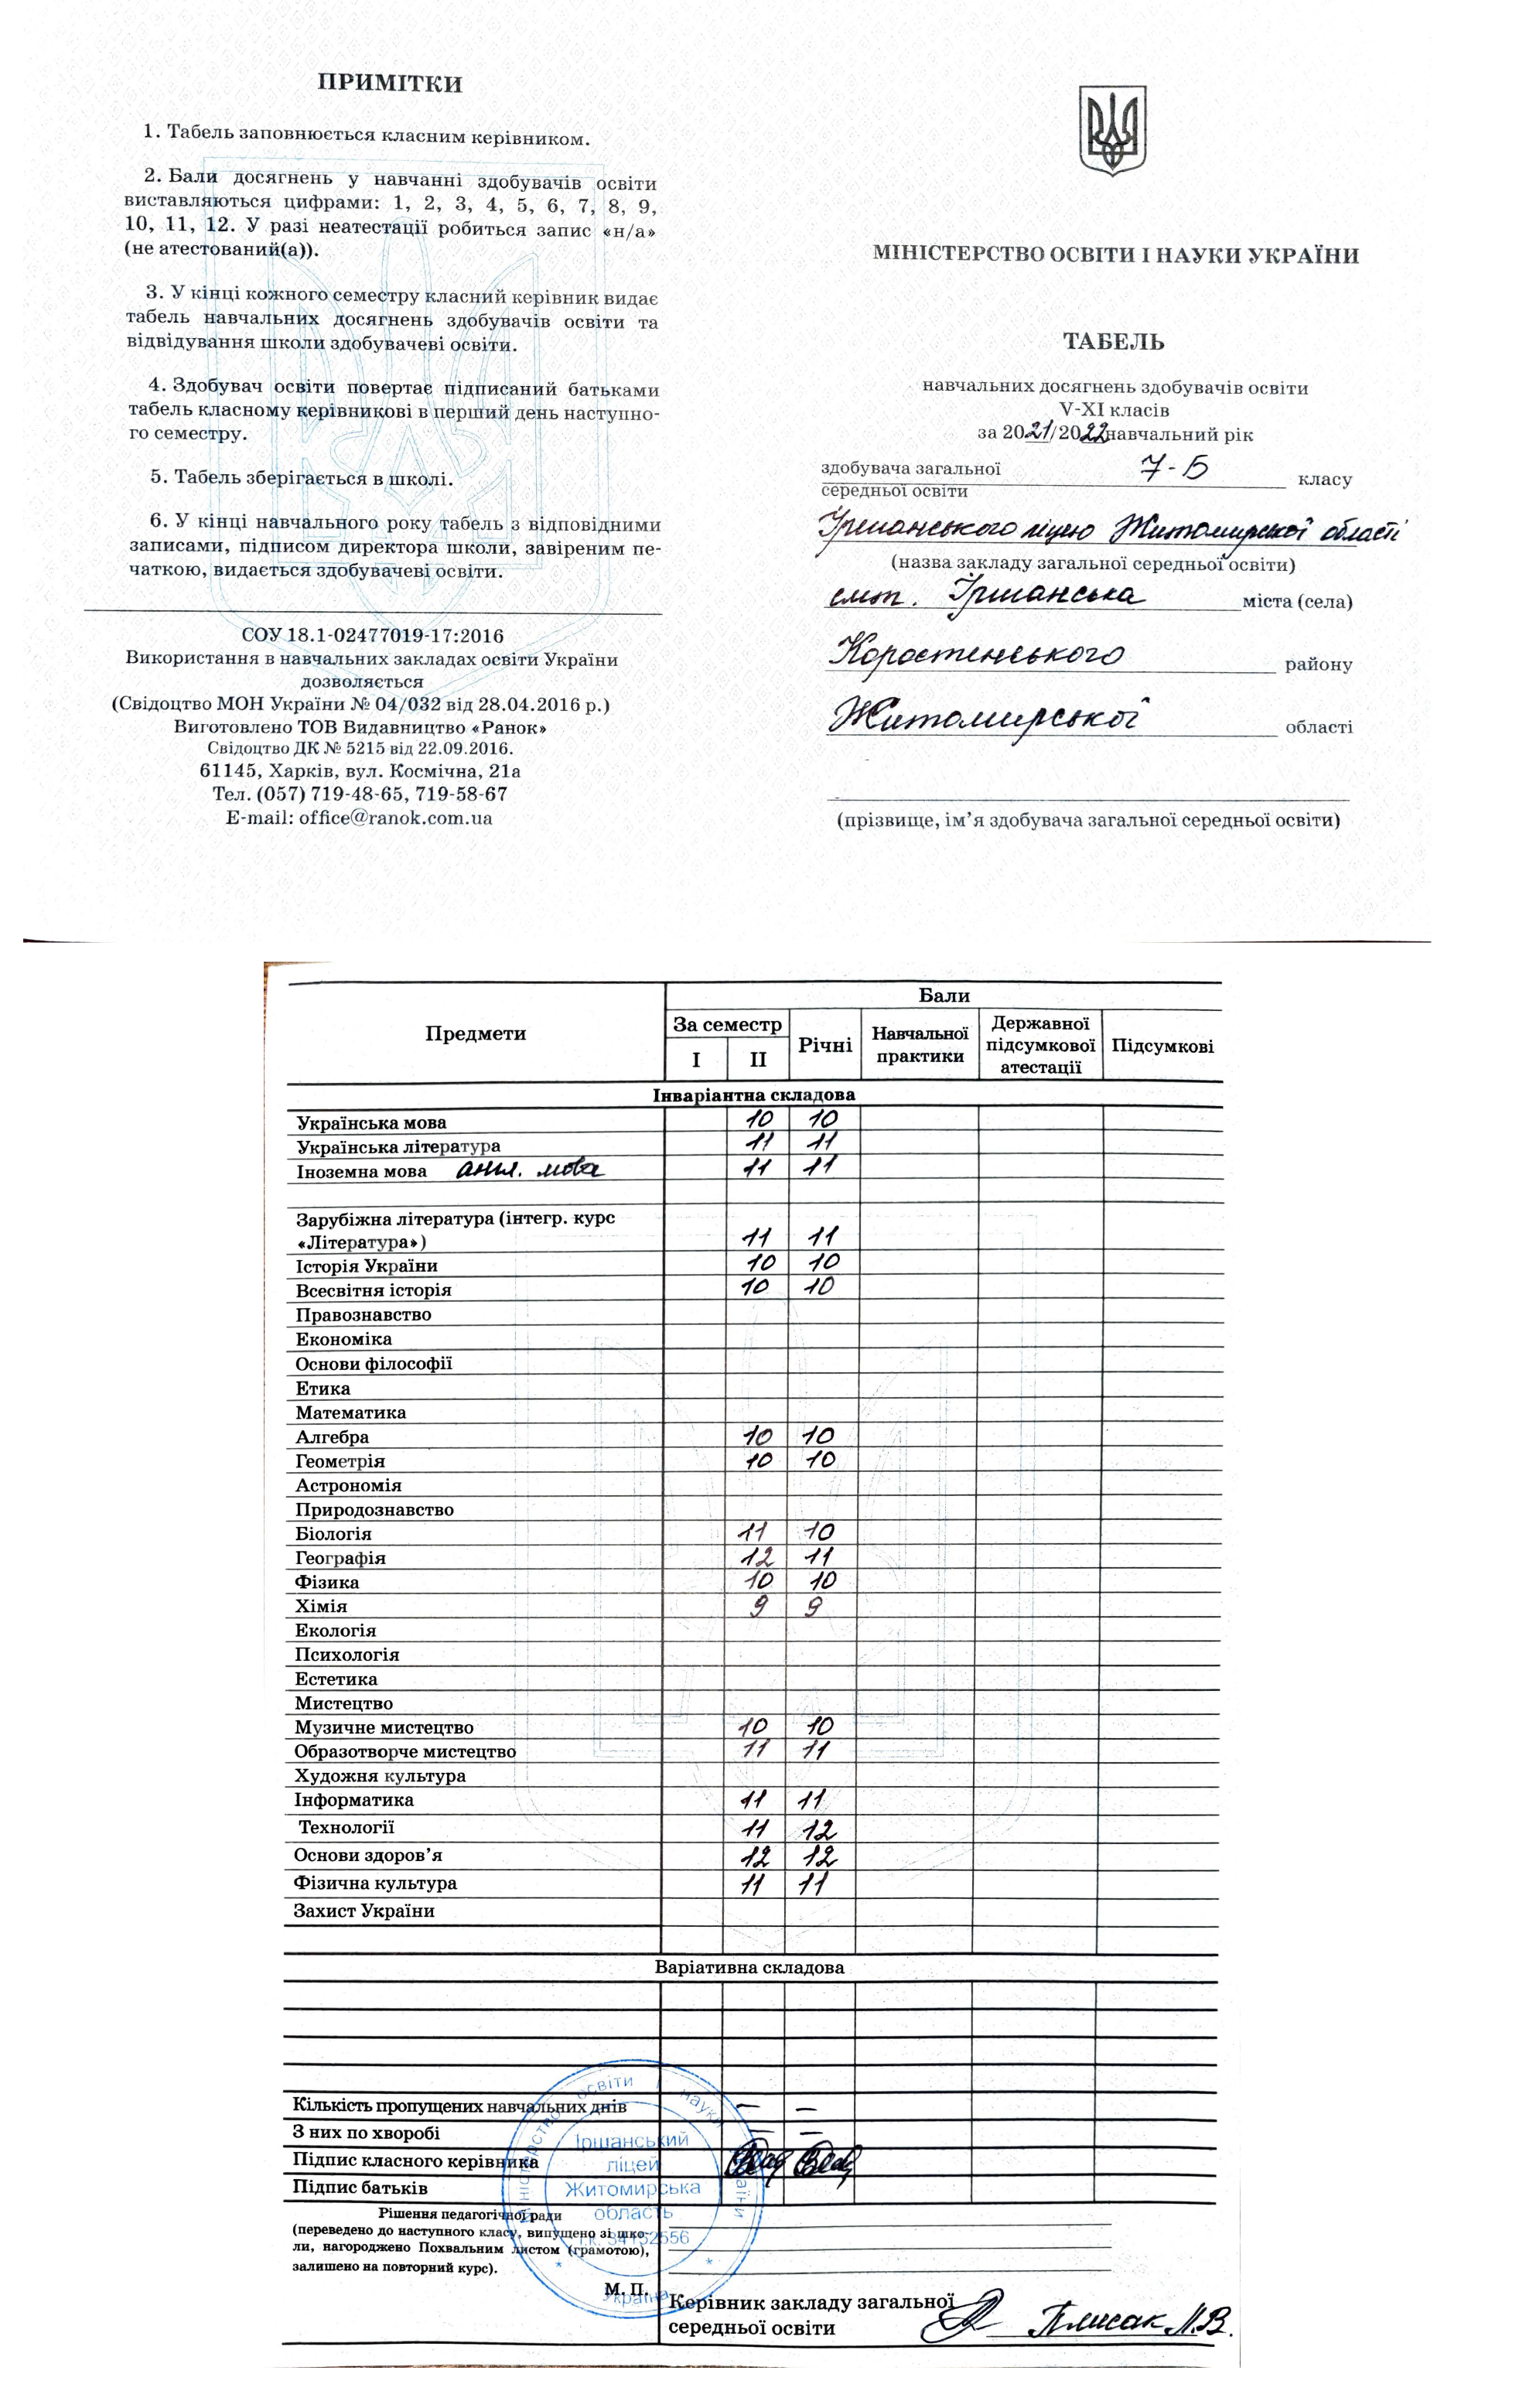 ПРИМІТКИ
1. Табель заповнюється класним керівником.
2. Бали досягнень у навчанні здобувачів освіти
виставляються цифрами: 1, 2, 3, 4, 5, 6, 7, 8, 9,
10, 11, 12. У разі неатестації робиться запис «н/а»
(не атестований(а)).
3. У кінці кожного семестру класний керівник видає
табель навчальних досягнень здобувачів освіти та
відвідування школи здобувачеві освіти.
4. Здобувач освіти повертає підписаний батьками
табель класному керівникові в перший день наступно-
го семестру.
5. Табель зберігається в школі.
6. У кінці навчального року табель з відповідними
записами, підписом директора школи, завіреним пе-
чаткою, видається здобувачеві освіти.
СОУ 18.1-02477019-17:2016
Використання в навчальних закладах освіти України
дозволяється
(Свідоцтво МОН України № 04/032 від 28.04.2016 р.)
Виготовлено ТОВ Видавництво «Ранок»
Свідоцтво ДК № 5215 від 22.09.2016.
61145, Харків, вул. Космічна, 21а
Тел. (057) 719-48-65, 719-58-67
E-mail: office@ranok.com.ua
МІНІСТЕРСТВО ОСВІТИ І НАУКИ УКРАЇНИ
ТАБЕЛЬ
навчальних досягнень здобувачів освіти
V-XI класів
за 2021/2022 навчальний рік
здобувача загальної 7-Б класу
середньої освіти
Іршанського ліцею Житомирської області
(назва закладу загальної середньої освіти)
смт. Іршанська міста (села)
Коростенського району
Житомирської області
(прізвище, ім'я здобувача загальної середньої освіти)
Предмети Бали
За семестр Річні Навчальної практики Державної підсумкової атестації Підсумкові
I II
Інваріантна складова
Українська мова 10 10
Українська література 11 11
Іноземна мова англ. мова 11 11
Зарубіжна література (інтегр. курс
«Література») 11 11
Історія України 10 10
Всесвітня історія 10 10
Правознавство
Економіка
Основи філософії
Етика
Математика
Алгебра 10 10
Геометрія 10 10
Астрономія
Природознавство
Біологія 11 10
Географія 12 11
Фізика 10 10
Хімія 9 9
Екологія
Психологія
Естетика
Мистецтво
Музичне мистецтво 10 10
Образотворче мистецтво 11 11
Художня культура
Інформатика 11 11
Технології 11 12
Основи здоров'я 12 12
Фізична культура 11 11
Захист України
Варіативна складова
Кількість пропущених навчальних днів — —
З них по хворобі — —
Підпис класного керівника
Підпис батьків
Рішення педагогічної ради
(переведено до наступного класу, випущено зі шко-
ли, нагороджено Похвальним листом (грамотою),
залишено на повторний курс).
М. П.
Керівник закладу загальної
середньої освіти Плисак Л.В.
Міністерство освіти і науки України
Іршанський
ліцей
Житомирська
область
Україна